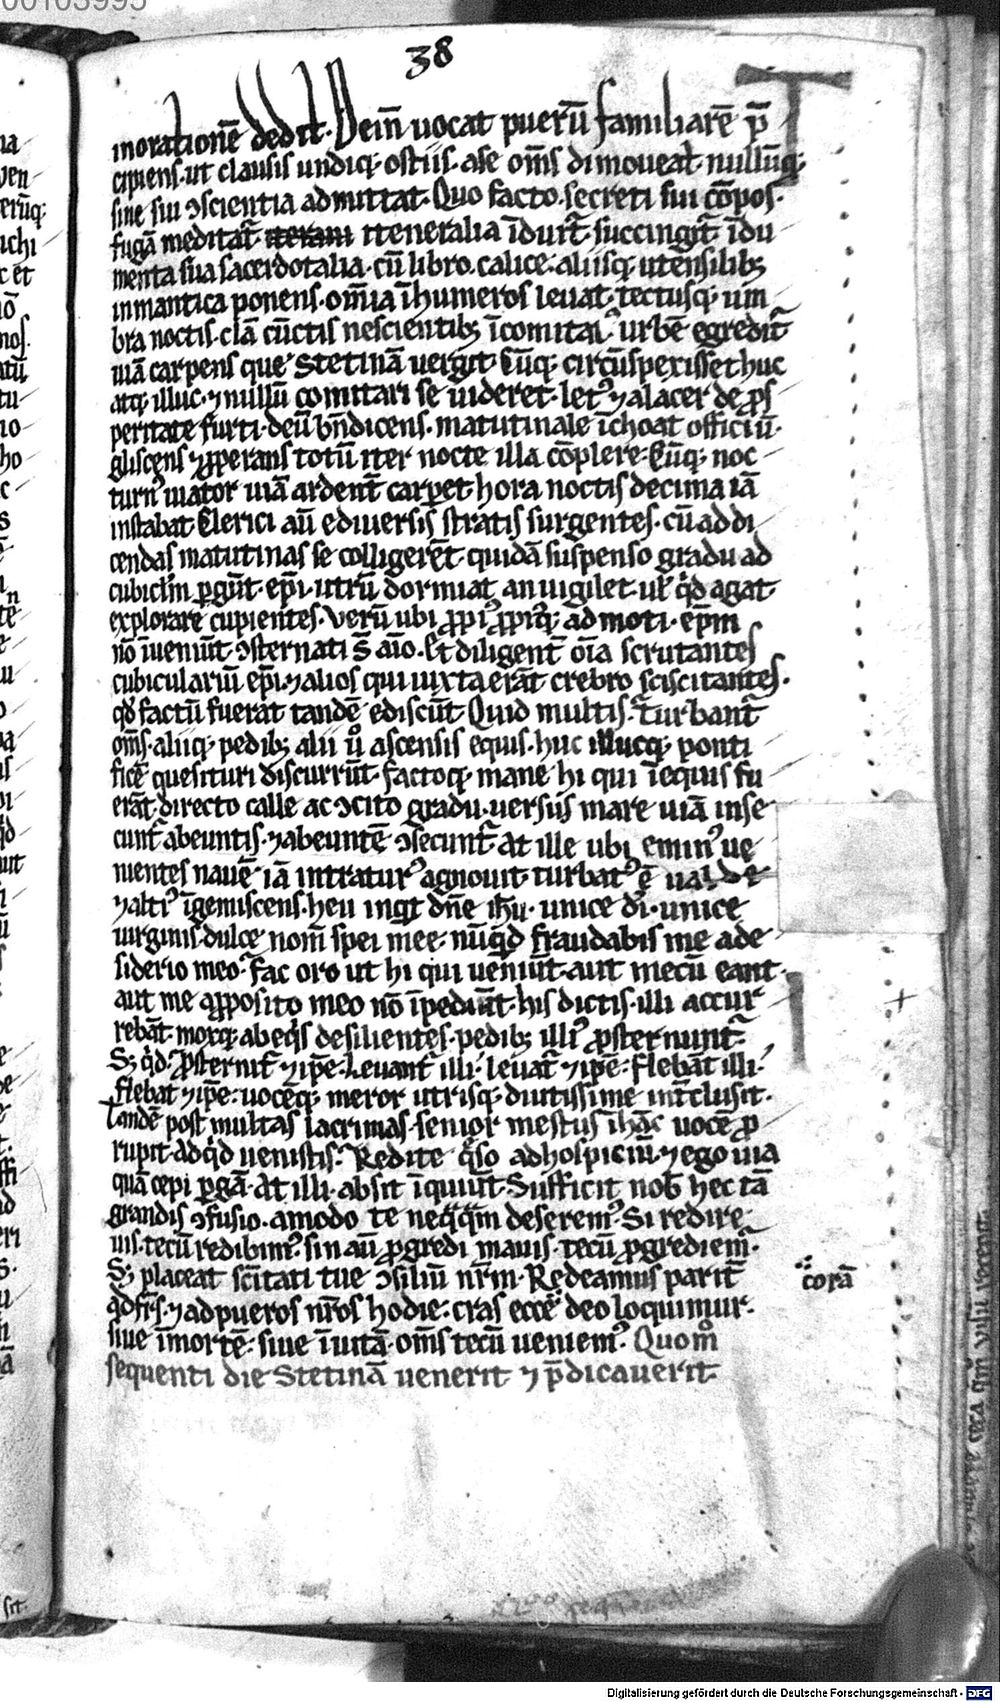 38
moratione᷒ dedit. Dein̄ uocat puerū familiarē p̄
cipiens. ut clausis undiq; ostiis. a se om̄s dimoueat. nullūq;
sine sui ↄscientia admittat. Quo facto. secreti sui cōpos.
fugā meditat᷑ iteneralia īduit᷑. succingit᷑ īdu
menta sua sacerdotalia. cū libro. calice. aliisq; utensilib;
in mantica ponens. om̄ia ī humeros leuat. tectusq; um
bra noctis. clā cūctis nescientib; īcomitat᷒ urbē egredit᷑
uiā carpens que Stetinā uergit. Cūq; circūspexisset huc
atq; illuc. ⁊ nullū comitari se uideret. let᷒ ⁊ alacer de ꝓs
peritate furti. deū bn̄dicens. matutinale īchoat officiū.
gliscens ⁊ ꝓperans totū iter nocte illa cōplere. Cūq; noc
turn᷒ uiator uiā ardent̄ carpet hora noctis decima iā
instabat. Clerici aū e diuersis stratis surgentes. cū ad di
cendas matutinas se colligerēt. quidā suspenso gradu ad
cubiclm̄ ꝑgūt. ep̄i. utrū dormiat an uigilet. ul̄ qͥd agat
explorare cupientes. Verū ubi ꝓpi᷒ ꝓpiq; admoti. ep̄m
nō īueniūt. ↄsternati s̄ aīo. Et diligent̄ om̄ia scrutantes
cubiculariū ep̄i. ⁊ alios qui iuxta erāt crebro sciscitantes.
qd̄ factū fuerat tandē ediscūt. Quid multis. turbant᷑
om̄s. aliiq; pedib; alii uͦ ascensis equis. huc illucq; ponti
ficē quesituri discurrūt. factoq; mane hi qui ī equis fu
erāt. directo calle ac ↄcito gradu. uersus mare uiā inse
cunt᷑ abeuntis. ⁊ abeuntē ↄsecunt᷑. At ille ubi emin᷒ ue
nientes nauē iā intratur᷒ agnouit. turbat᷒ ē ualde
⁊ alti᷒ īgemiscens. heu inqͥt dn̄e ih̄u. unice dī. unice
uirginis. dulce nom̄ spei mee. nūqͥd fraudabis me a de
siderio meo. fac oro ut hi qui ueniūt. aut mecū eant.
aut me a ꝓposito meo nō īpediāt. his dictis. illi accur
rebāt. moxq; ab eqͥs desilientes. pedib; illi᷒ ꝓsternunt᷑.
S; qͥd. ꝓsternit᷑ ⁊ ip̄e. Leuant᷑ illi. leuat᷑ ⁊ ip̄e. flebāt illi.
flebat ⁊ ip̄e. uocēq; meror utrisq; diutissime int᷑clusit.
Tandē post multas lacrimas. senior mestus ī hāc uocē ꝓ
rupit. ad qͥd uenistis. Redite qͣso ad hospiciū. ⁊ ego uia
quā cepi ꝑgā. At illi. absit īquiūt. Sufficit nob̄ hec tā
grandis ↄfusio. amodo te neqͣqͣm deserem᷒. Si redire
uis. tecū redibim᷒. sin aū ꝓgredi mauis. tecū ꝓgrediem᷑.
S; placeat sc̄itati tue ↄsiliū nr̄m. Redeamus parit᷑
qd̄ fr̄s. ⁊ ad pueros nr̄os hodie. cras ecce deo loquimur.
corā
siue ī morte. siue ī uitā. om̄s tecū ueniem᷒. Quom̊
sequenti die Stetinā uenerit ⁊ p̄dicauerit.
Digitalisierung gefördert durch die Deutsche Forschungsgemeinschaft - DFG